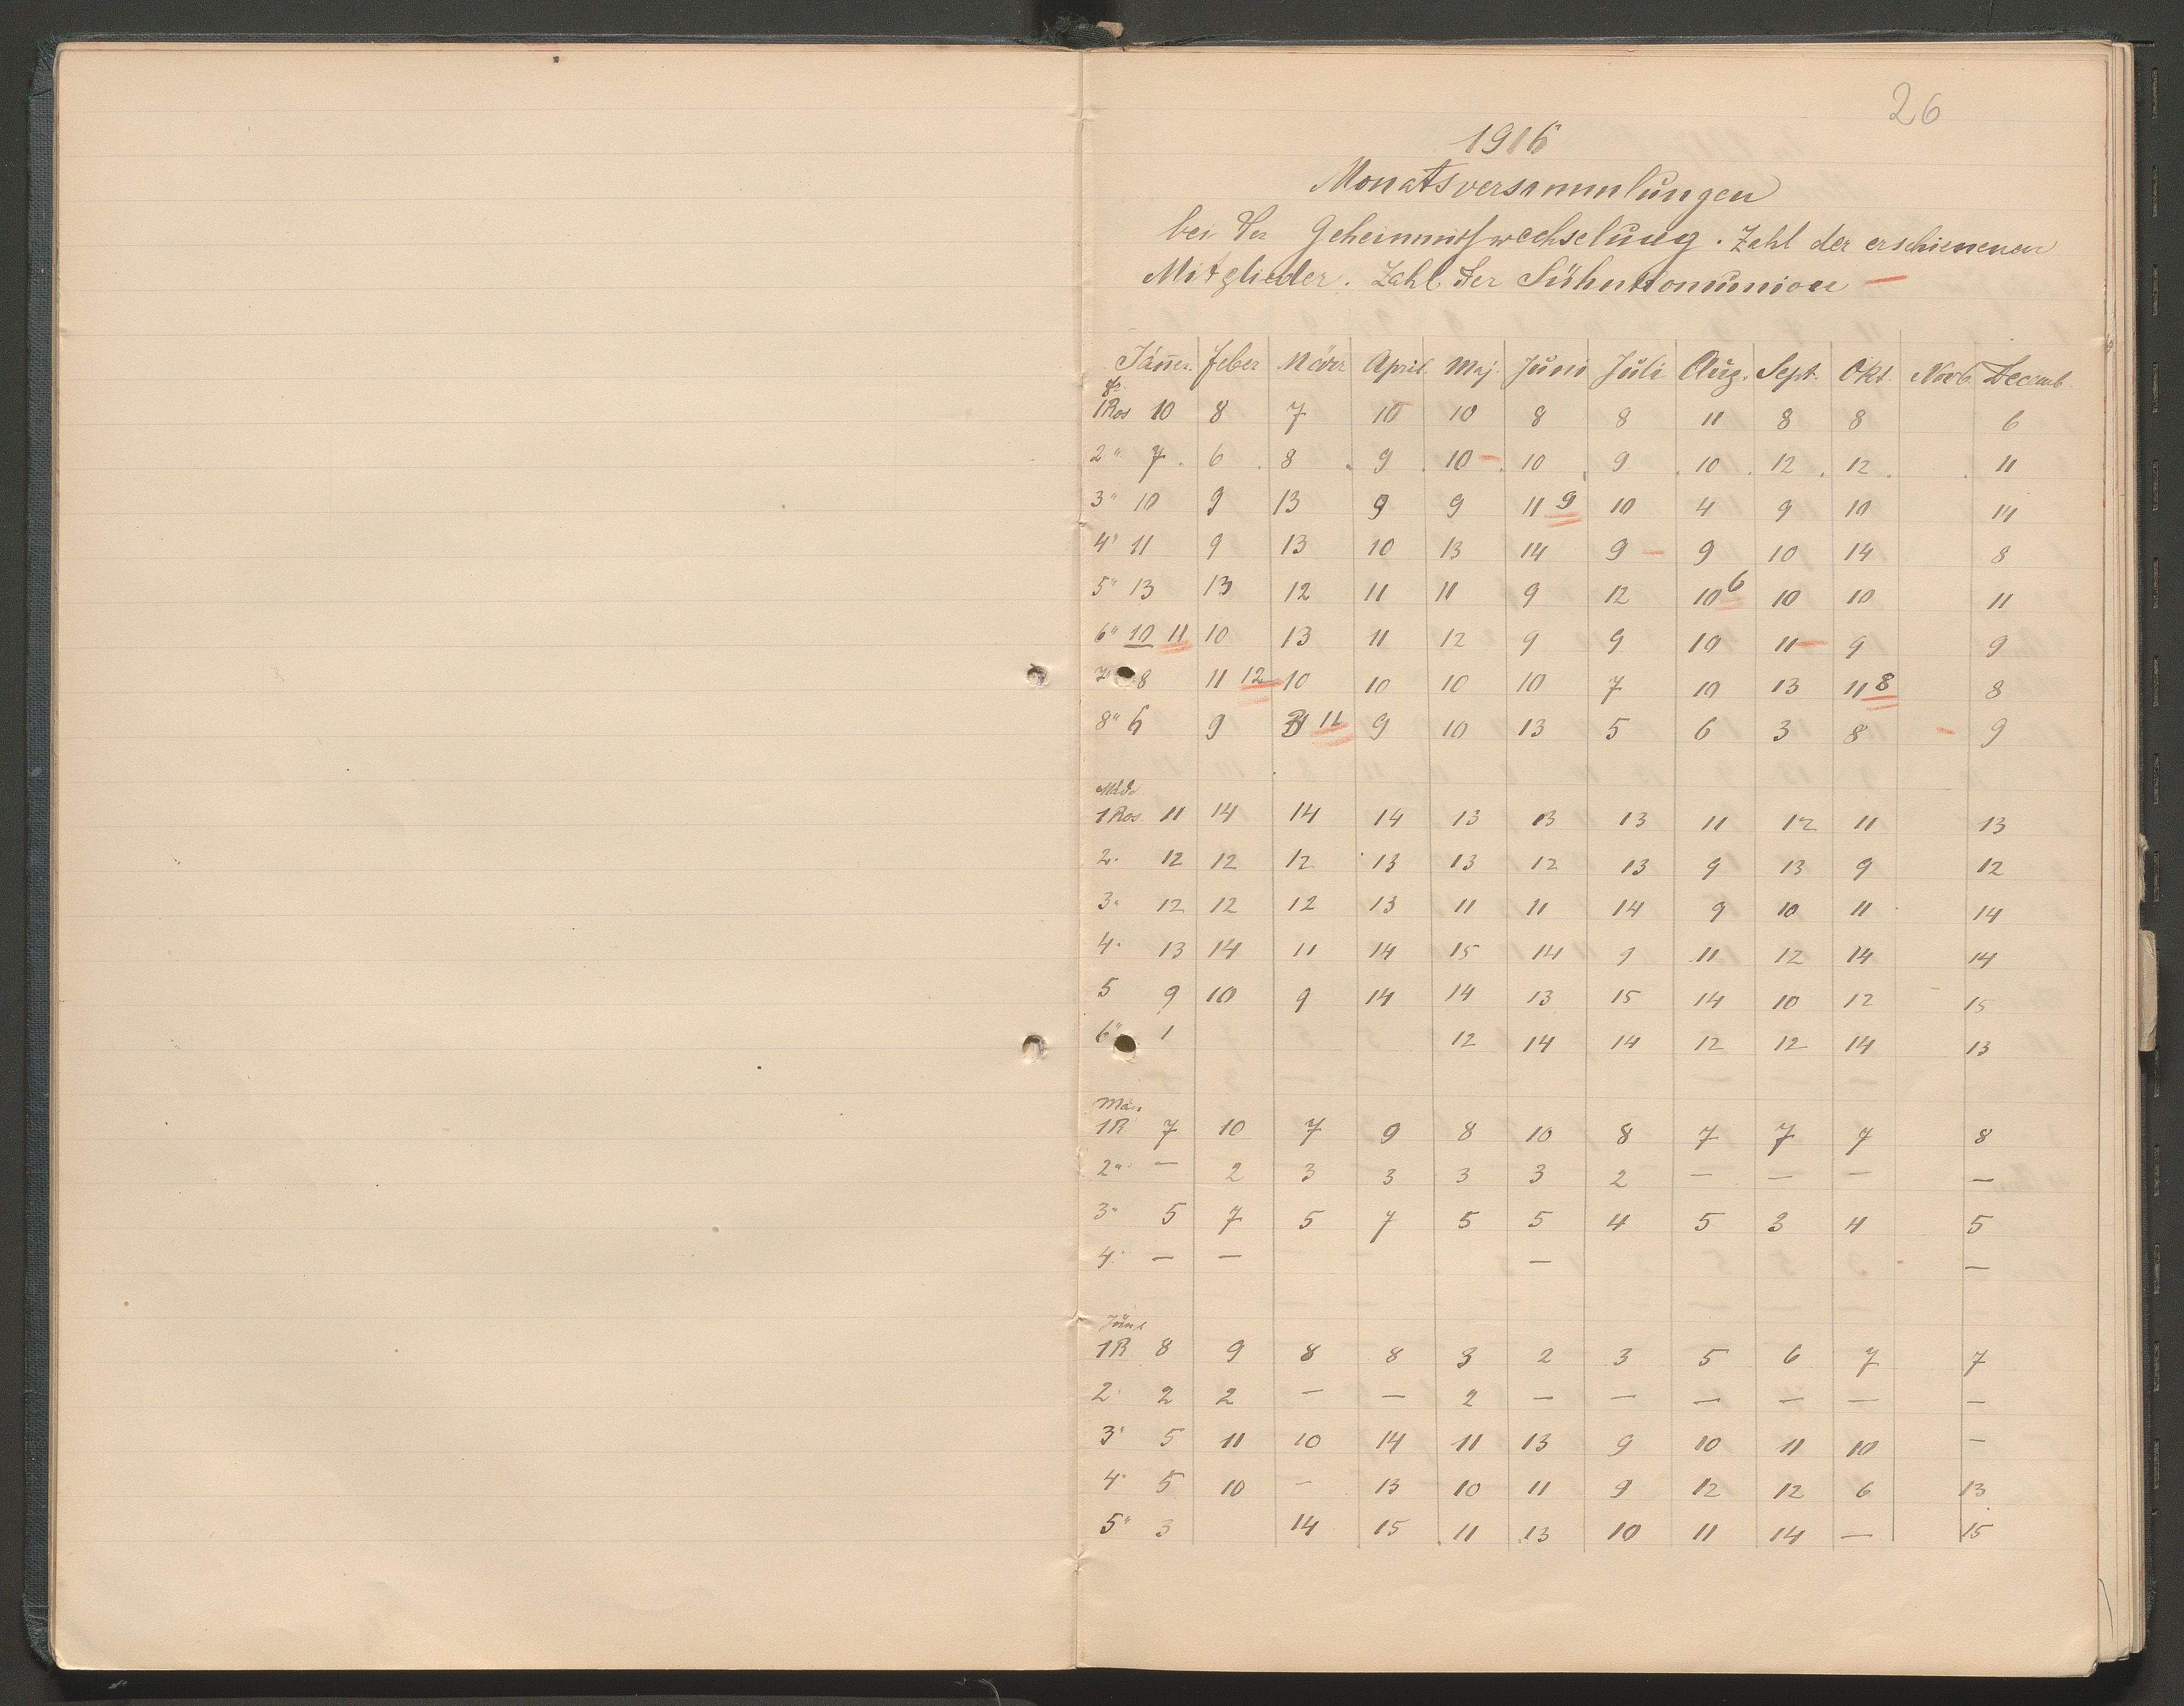 26
1916
Monatsversammlungen
bei der Geheimniswechselung. Zahl der erschienenen
Mitglieder. Zahl der Sühnkomunion —
Jäner Feber März April Maj Juni Juli Aug. Sept. Okt. Novb Decemb
Fr
1 Ros 10 8 7 10 10 8 8 11 8 8 6
2 " 7 6 8 9 10 — 10 9 10 12 12 11
3 " 10 9 13 9 9 11 9 10 4 9 10 14
4 " 11 9 13 10 13 14 9 — 9 10 14 8
5 " 13 13 12 11 11 9 12 10 6 10 10 11
6 " 10 11 10 13 11 12 9 9 10 11 — 9 9
7 " 8 11 12 10 10 10 10 7 10 13 11 8 8
8 " 6 9 11 9 10 13 5 6 3 8 — 9
Mäd
1 Ros 11 14 14 14 13 13 13 11 12 11 13
2 . 12 12 12 13 13 12 13 9 13 9 12
3 " 12 12 12 13 11 11 14 9 10 11 14
4 . 13 14 11 14 15 14 9 11 12 14 14
5 9 10 9 14 14 13 15 14 10 12 15
6 " 1 12 14 14 12 12 14 13
Män
1 R 7 10 7 9 8 10 8 7 7 7 8
2 " — 2 3 3 3 3 2 — — — —
3 " 5 7 5 7 5 5 4 5 3 4 5
4 . — — — —
Jüngl
1 R 8 9 8 8 3 2 3 5 6 7 7
2 2 2 — — 2 — — — — — —
3 " 5 11 10 14 11 13 9 10 11 10 —
4 . 5 10 — 13 10 11 9 12 12 6 13
5 " 3 14 15 11 13 10 11 14 — 15